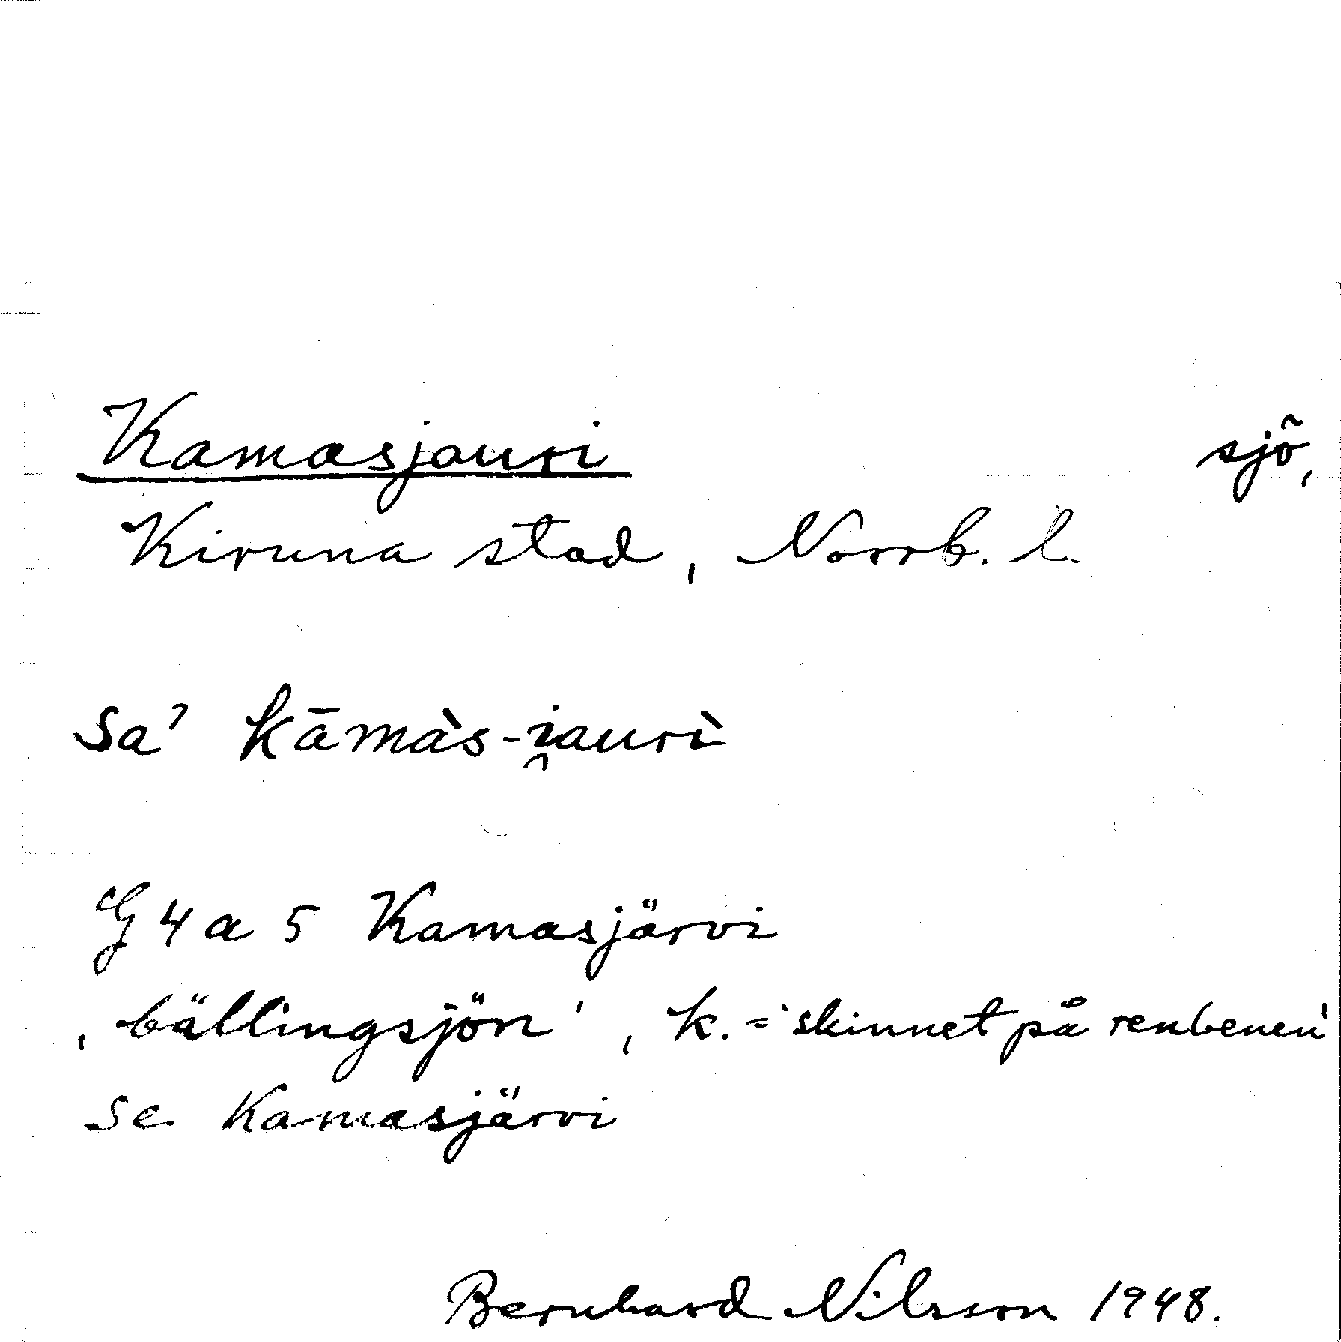 Kamasjauri sjö,
Kiruna stad, Norrb. l.
sa' kāmàs-i̯aurì
G 4 a 5 Kamasjärvi
'bällingsjön', k. = 'skinnet på renbenen'
se Kamasjärvi
Bernhard Nilsson 1948.